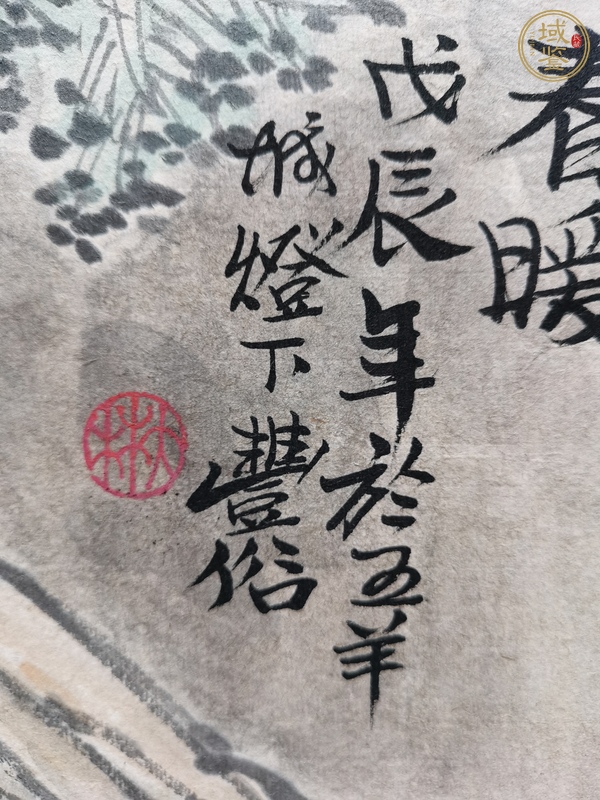 春暖
戊辰年於五羊
城燈下豐俗
域鉴